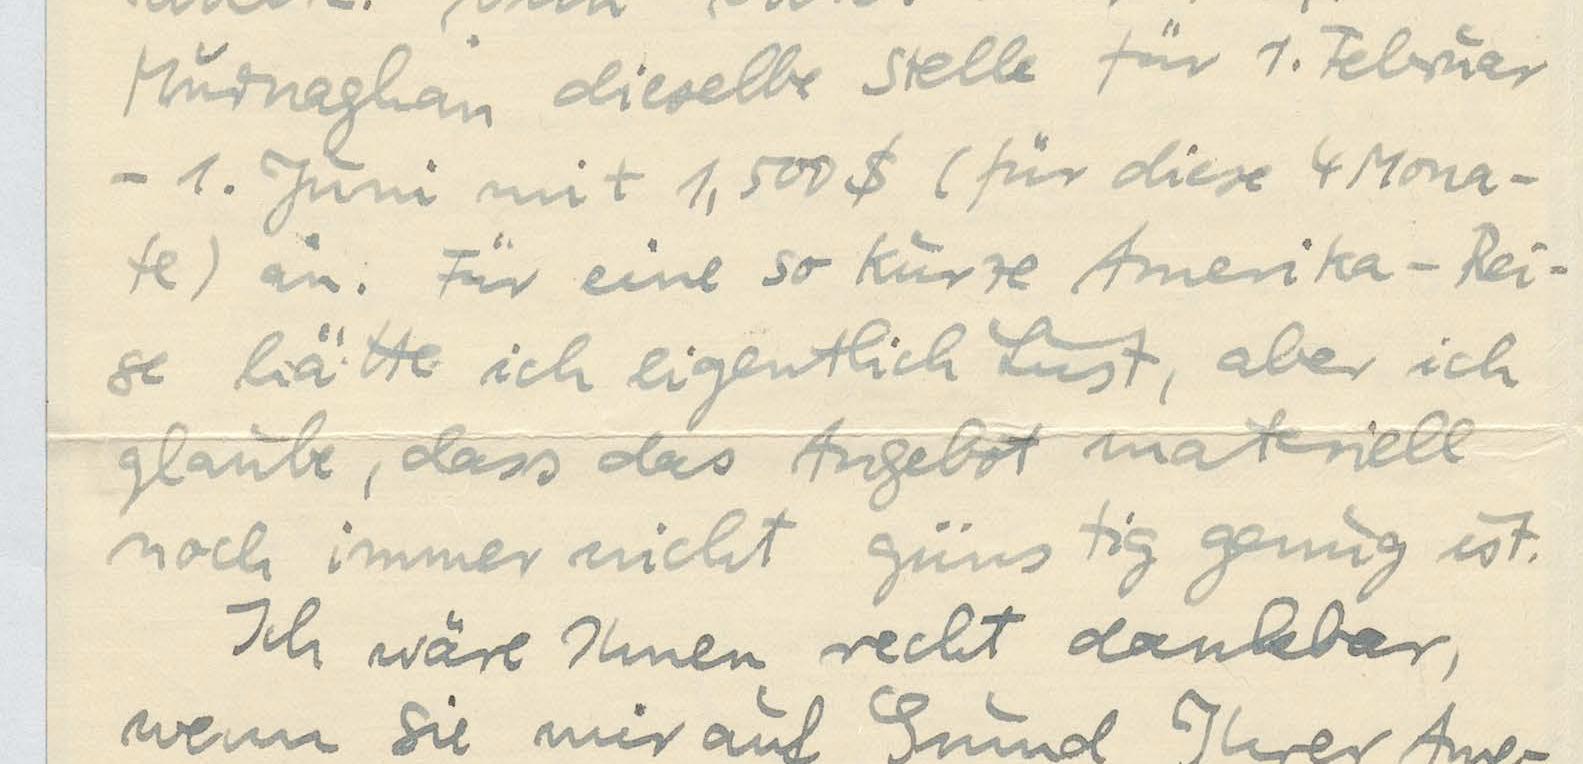 Murnaghan dieselbe Stelle für 1. Februar
- 1. Juni mit 1,500 $ (für diese 4 Mona-
te) an. Für eine so kurze Amerika-Rei-
se hätte ich eigentlich Lust, aber ich
glaube, dass das Angebot materiell
noch immer nicht günstig genug ist.
Ich wäre Ihnen recht dankbar,
wenn Sie mir auf Grund Ihrer Ame-